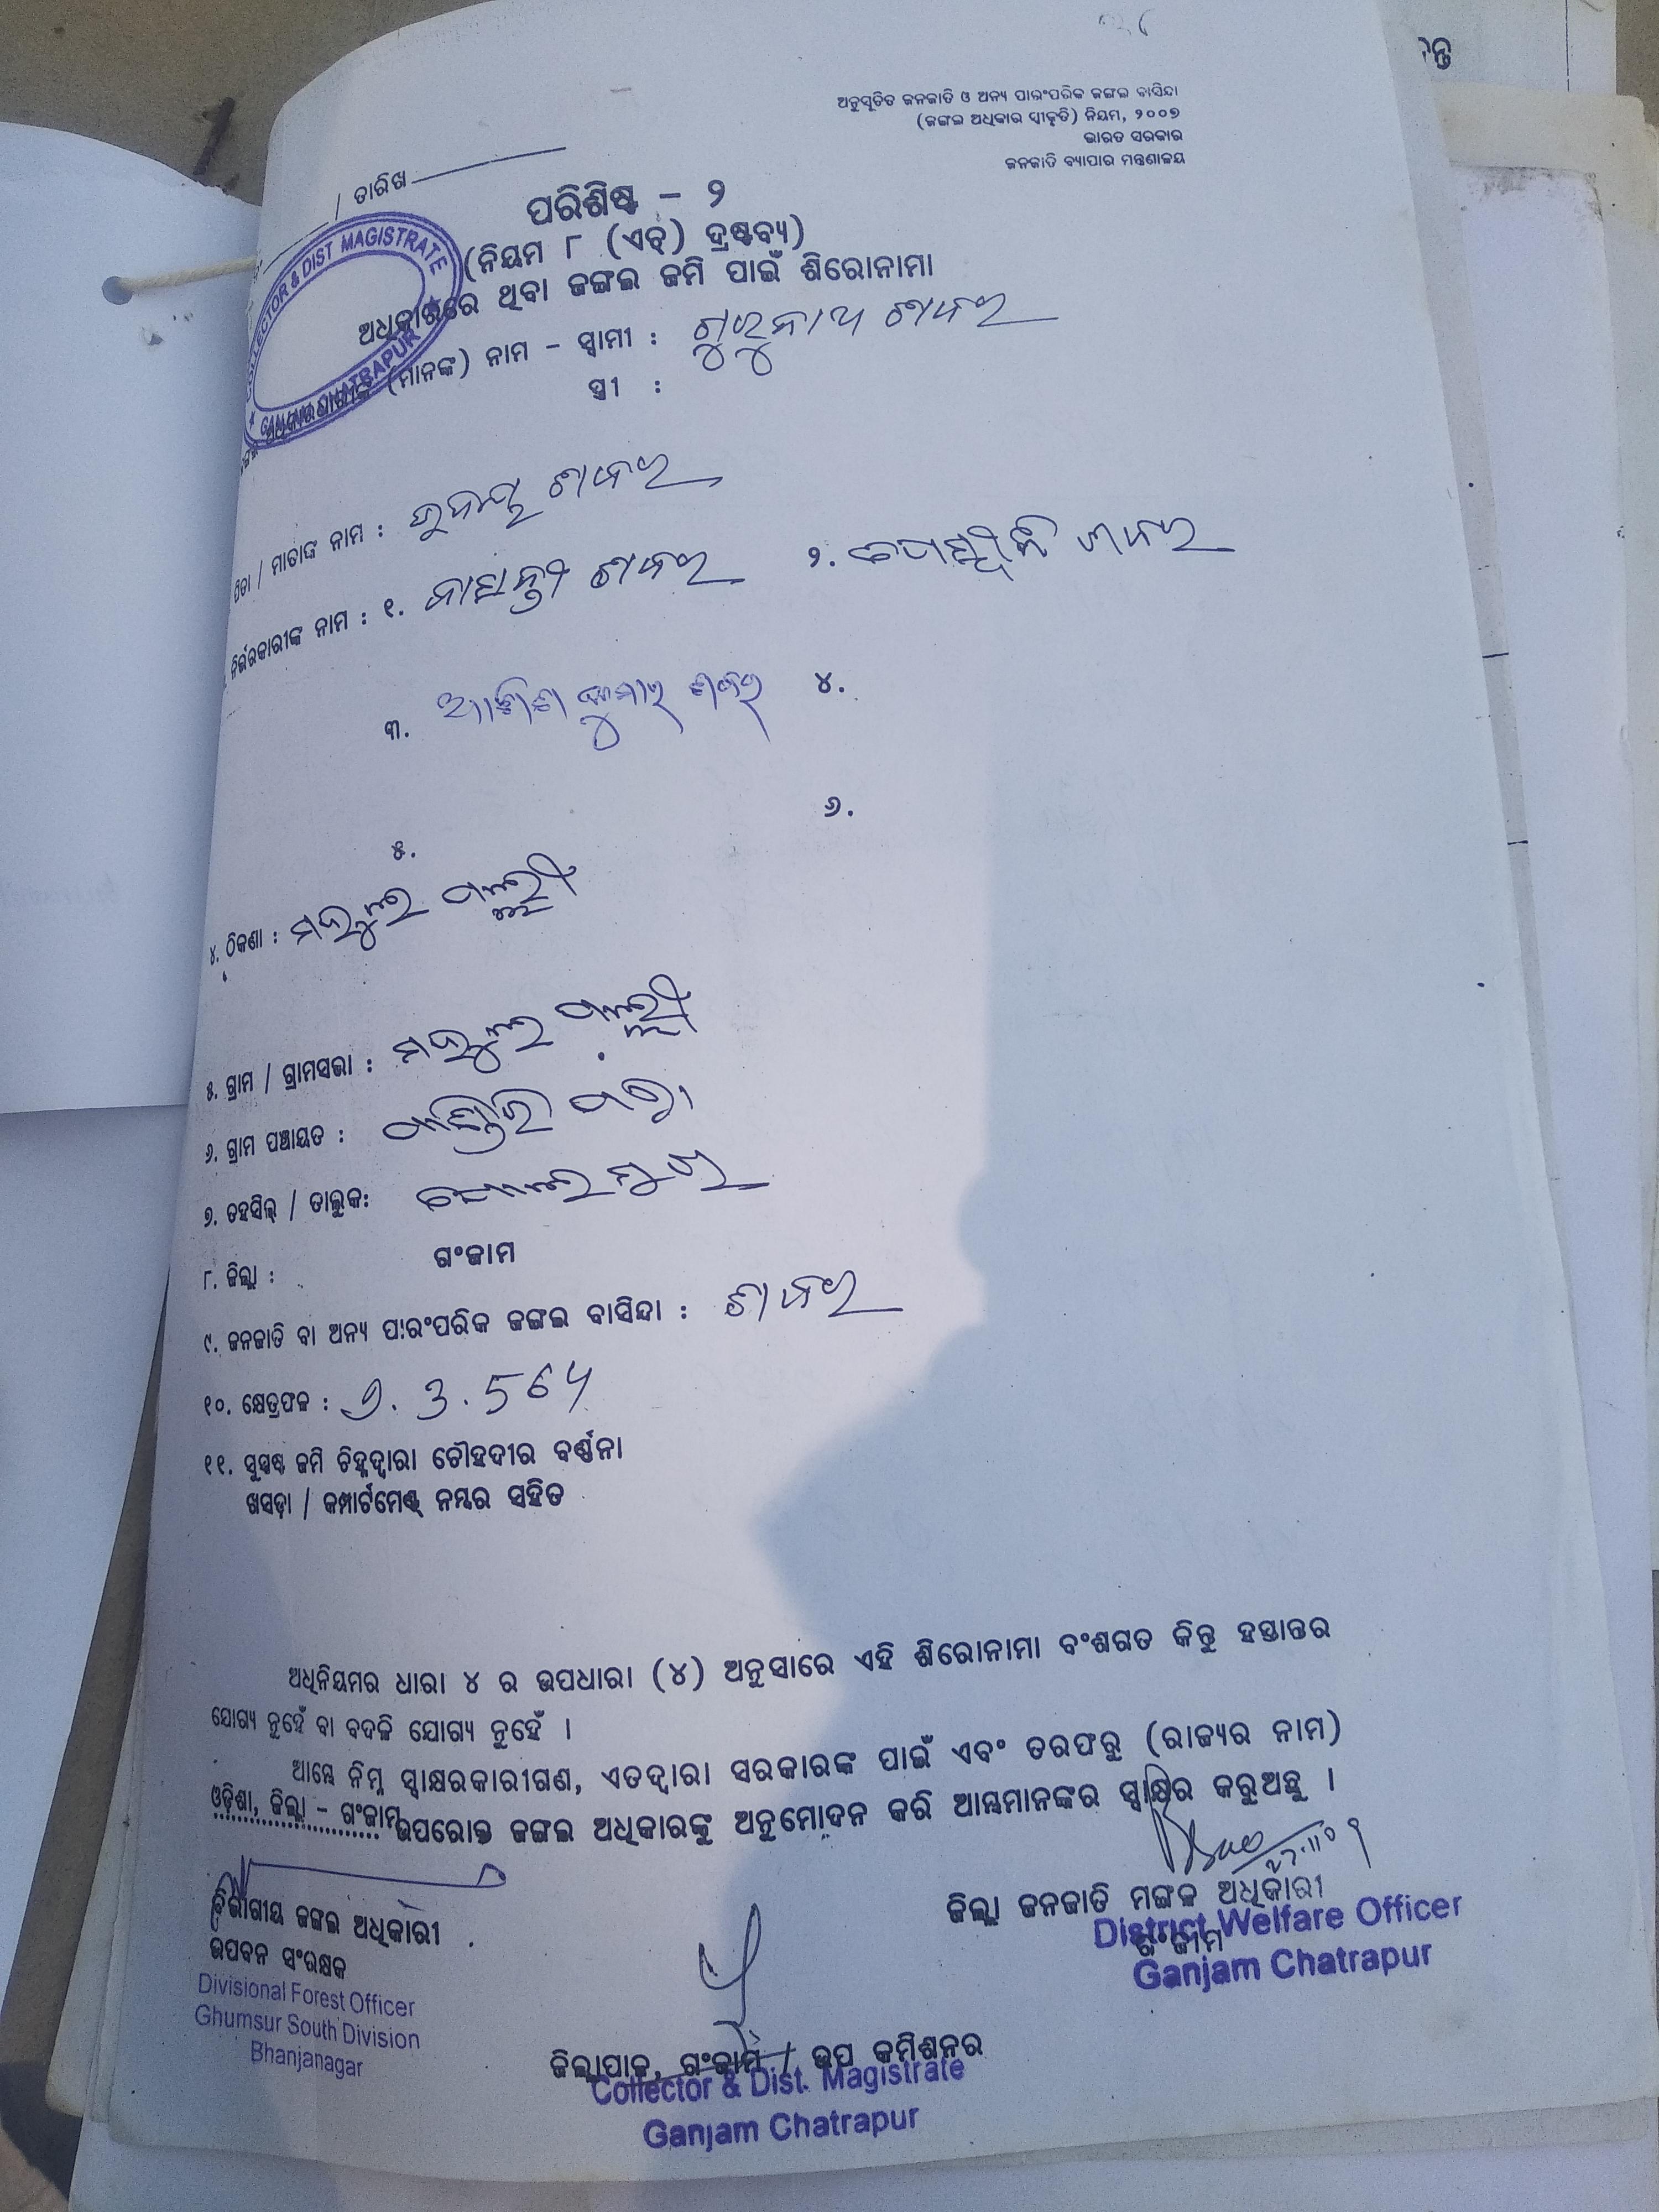 ଅନୁସୂଚିତ ଜନଜାତି ଓ ଅନ୍ୟ ପାରଂପରିକ ଜଙ୍ଗଲ ବାସିନ୍ଦା
(ଜଙ୍ଗଲ ଅଧିକାର ସ୍ୱୀକୃତି) ନିୟମ, ୨୦୦୭
ଭାରତ ସରକାର
ଜନଜାତି ବ୍ୟାପାର ମନ୍ତ୍ରଣାଳୟ
/ ତାରିଖ
ପରିଶିଷ୍ଟ – ୨
(ନିୟମ ୮ (ଏଚ୍) ଦ୍ରଷ୍ଟବ୍ୟ)
ଅଧିକାରରେ ଥିବା ଜଙ୍ଗଲ ଜମି ପାଇଁ ଶିରୋନାମା
COLLECTOR & DIST MAGISTRATE
GANJAM CHATRAPUR
(ମାନଙ୍କ) ନାମ – ସ୍ୱାମୀ : ଗୁରୁନାଥ ଶବର
ସ୍ତ୍ରୀ :
ପିତା / ମାତାଙ୍କ ନାମ : ଶବର
ନିର୍ଭରକାରୀଙ୍କ ନାମ : ୧. ଶବର ୨. ଶବର
୩. କୁମାର ଶବର ୪.
୫. ୬.
୪. ଠିକଣା : ପଲ୍ଲୀ
୫. ଗ୍ରାମ / ଗ୍ରାମସଭା : ପଲ୍ଲୀ
୬. ଗ୍ରାମ ପଞ୍ଚାୟତ :
୭. ତହସିଲ୍ / ତାଲୁକ:
୮. ଜିଲ୍ଲା : ଗଂଜାମ
୯. ଜନଜାତି ବା ଅନ୍ୟ ପାରଂପରିକ ଜଙ୍ଗଲ ବାସିନ୍ଦା : ଶବର
୧୦. କ୍ଷେତ୍ରଫଳ :
୧୧. ସୁସ୍ପଷ୍ଟ ଜମି ଚିହ୍ନଦ୍ୱାରା ଚୌହଦୀର ବର୍ଣ୍ଣନା
ଖସଡ଼ା / କମ୍ପାର୍ଟମେଣ୍ଟ୍ ନମ୍ବର ସହିତ
ଅଧିନିୟମର ଧାରା ୪ ର ଉପଧାରା (୪) ଅନୁସାରେ ଏହି ଶିରୋନାମା ବଂଶଗତ କିନ୍ତୁ ହସ୍ତାନ୍ତର
ଯୋଗ୍ୟ ନୁହେଁ ବା ବଦଳି ଯୋଗ୍ୟ ନୁହେଁ ।
ଆମ୍ଭେ ନିମ୍ନ ସ୍ୱାକ୍ଷରକାରୀଗଣ, ଏତଦ୍ୱାରା ସରକାରଙ୍କ ପାଇଁ ଏବଂ ତରଫରୁ (ରାଜ୍ୟର ନାମ)
ଓଡ଼ିଶା, ଜିଲ୍ଲା – ଗଂଜାମ ଉପରୋକ୍ତ ଜଙ୍ଗଲ ଅଧିକାରଙ୍କୁ ଅନୁମୋଦନ କରି ଆମ୍ଭମାନଙ୍କର ସ୍ୱାକ୍ଷର କରୁଅଛୁ ।
ଜିଲ୍ଲା ଜନଜାତି ମଙ୍ଗଳ ଅଧିକାରୀ
ଗଂଜାମ
District Welfare Officer
Ganjam Chatrapur
ବିଭାଗୀୟ ଜଙ୍ଗଲ ଅଧିକାରୀ
ଉପବନ ସଂରକ୍ଷକ
Divisional Forest Officer
Ghumsur South Division
Bhanjanagar
ଜିଲ୍ଲାପାଳ, ଗଂଜାମ / ଉପ କମିଶନର
Collector & Dist. Magistrate
Ganjam Chatrapur